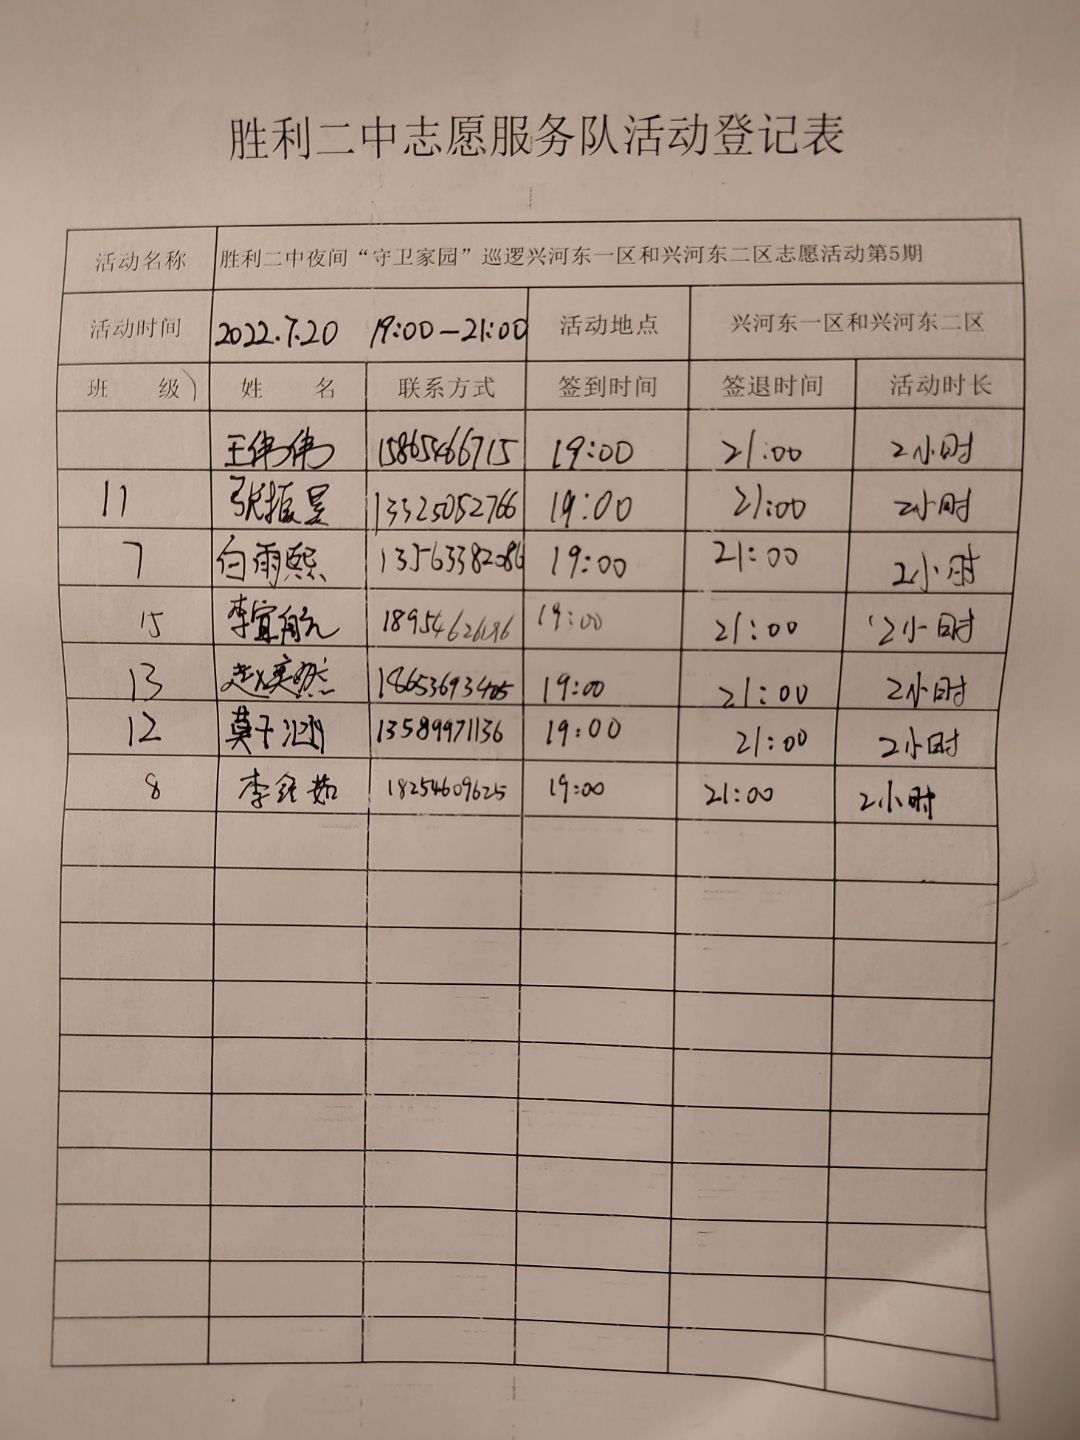 胜利二中志愿服务队活动登记表
活动名称 胜利二中夜间“守卫家园”巡逻兴河东一区和兴河东二区志愿活动第5期
活动时间 2022.7.20 19:00—21:00 活动地点 兴河东一区和兴河东二区
班 级 姓 名 联系方式 签到时间 签退时间 活动时长
王伟伟 15865466715 19:00 21:00 2小时
11 张振昱 13325052766 19:00 21:00 2小时
7 白雨熙 13563382086 19:00 21:00 2小时
15 李宜航 19:00 21:00 2小时
13 赵奕然 19:00 21:00 2小时
12 莫子涵 13589971136 19:00 21:00 2小时
8 李 茹 18254609625 19:00 21:00 2小时